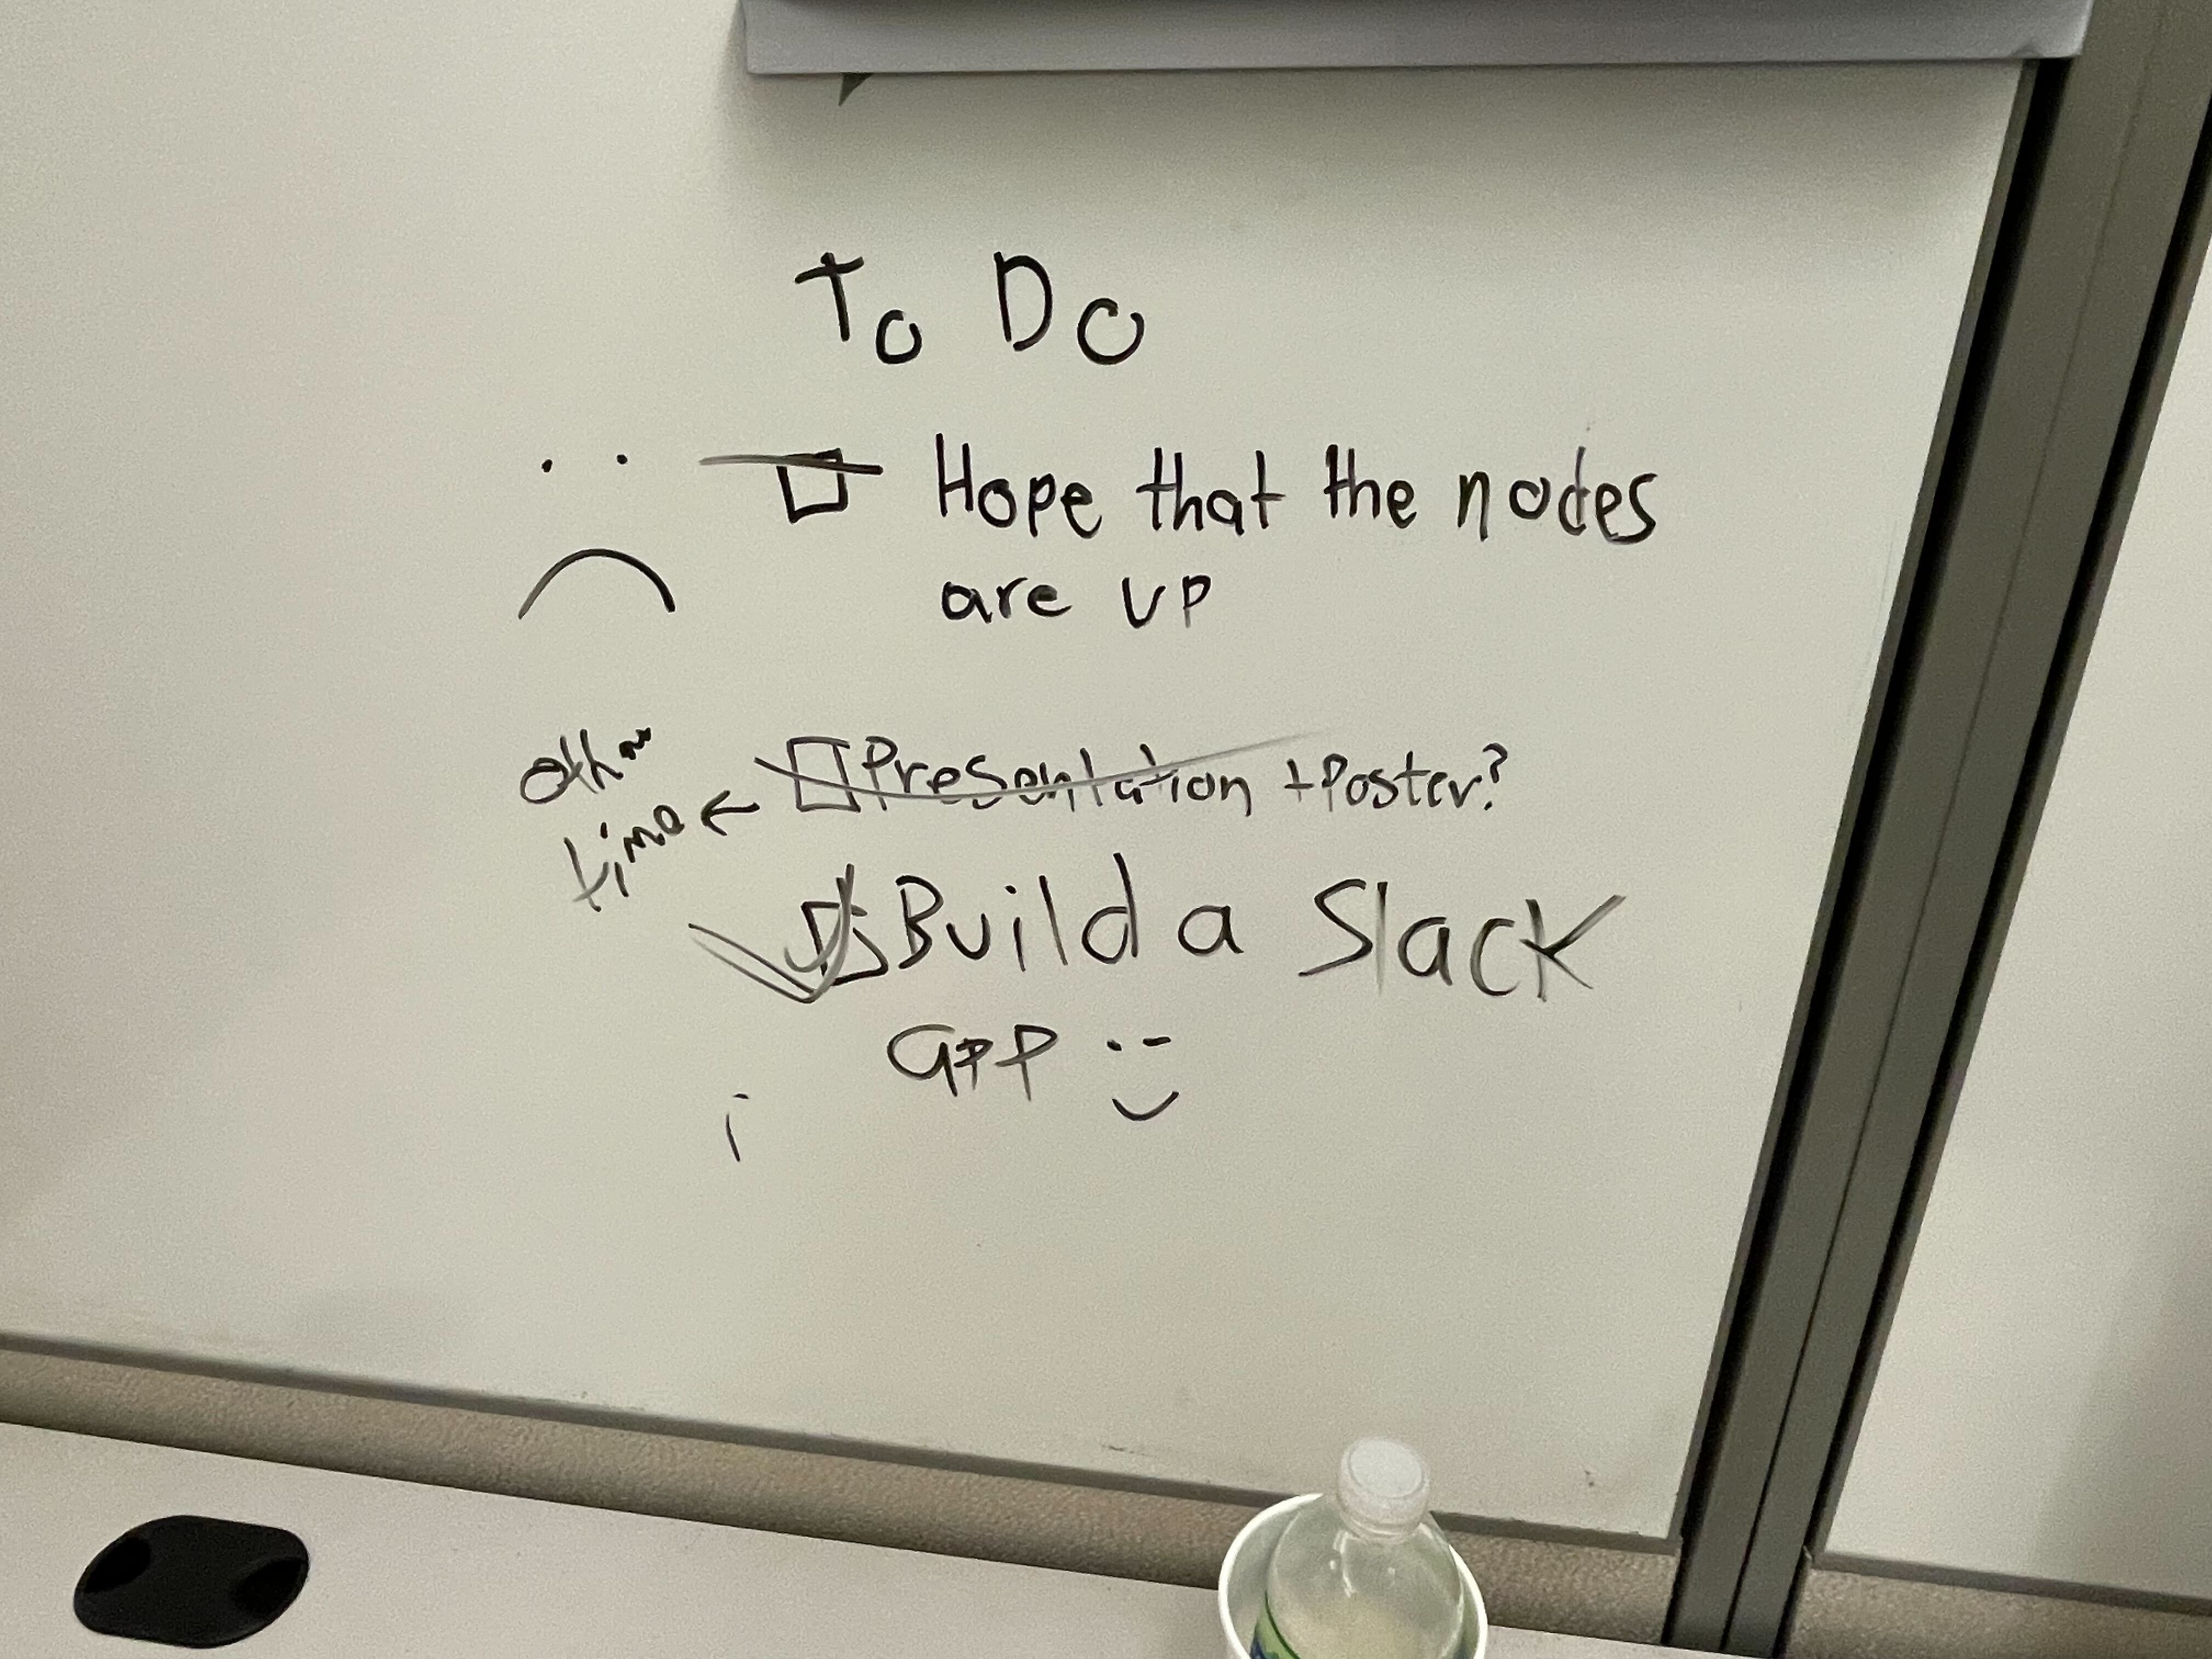 To Do
Hope that the nodes
are up
other
time ← Presentation + Poster?
Build a Slack
app